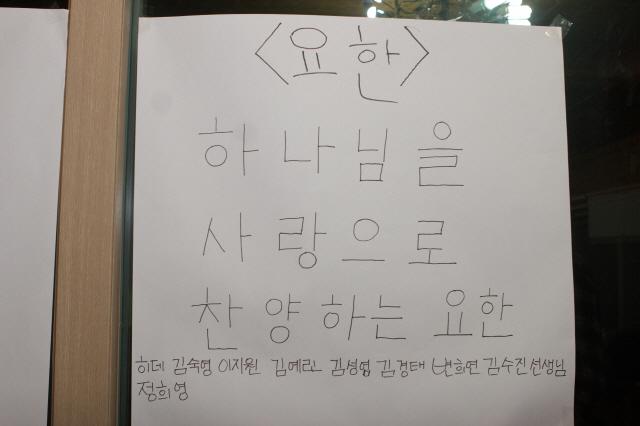 <요한>
하나님을
사랑으로
찬양하는 요한
히데 김숙영 이지원 김예린 김성엽 김경태 변희연 김수진선생님
정희영